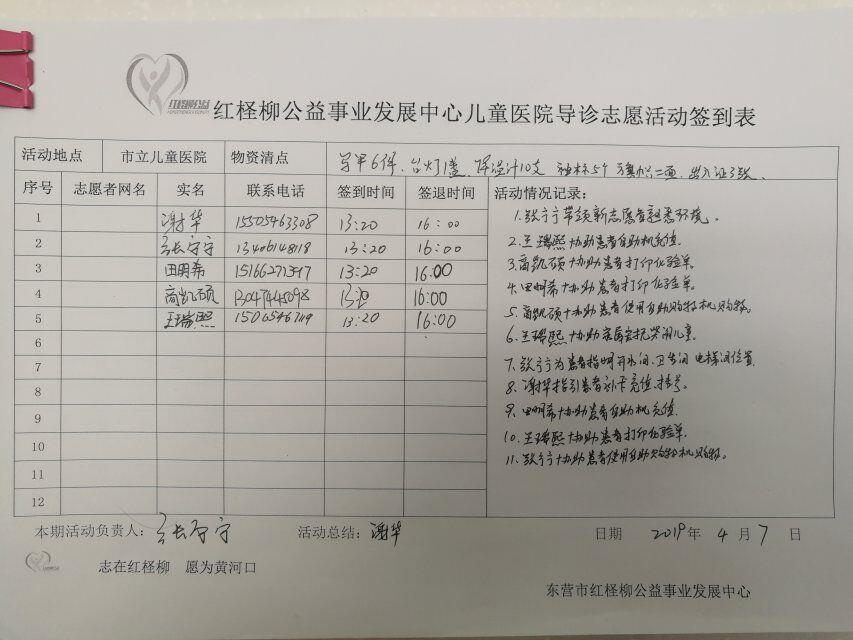 红柽柳公益事业发展中心儿童医院导诊志愿活动签到表
活动地点 市立儿童医院 物资清点 马甲6件、台灯1盏、体温计10支 袖标5个 出入证3张、
序号 志愿者网名 实名 联系电话 签到时间 签退时间 活动情况记录:
1 谢华 15505463308 13:20 16:00
2 张宁宁 13406148118 13:20 16:00
3 田明希 13:20 16:00
4 高凯硕 13047445098 13:20 16:00
5 王瑞熙 13:20 16:00
6
7
8
9
10
11
12
1.张宁宁带领新志愿者熟悉环境。
2.王瑞熙协助患者自助机充值.
3.高凯硕协助患者打印化验单.
4.田明希协助患者打印化验单.
5.高凯硕协助患者使用自助购物机购物.
6.王瑞熙协助安抚哭闹儿童.
7.张宁宁为患者指明开水间、卫生间 电梯间位置
8.谢华指引患者补卡充值、挂号。
9.田明希协助患者自助机充值.
10.王瑞熙协助患者打印化验单.
11.张宁宁协助患者使用自助购物机购物。
本期活动负责人: 张宁宁 活动总结: 谢华 日期 2019年 4月 7日
志在红柽柳 愿为黄河口
东营市红柽柳公益事业发展中心